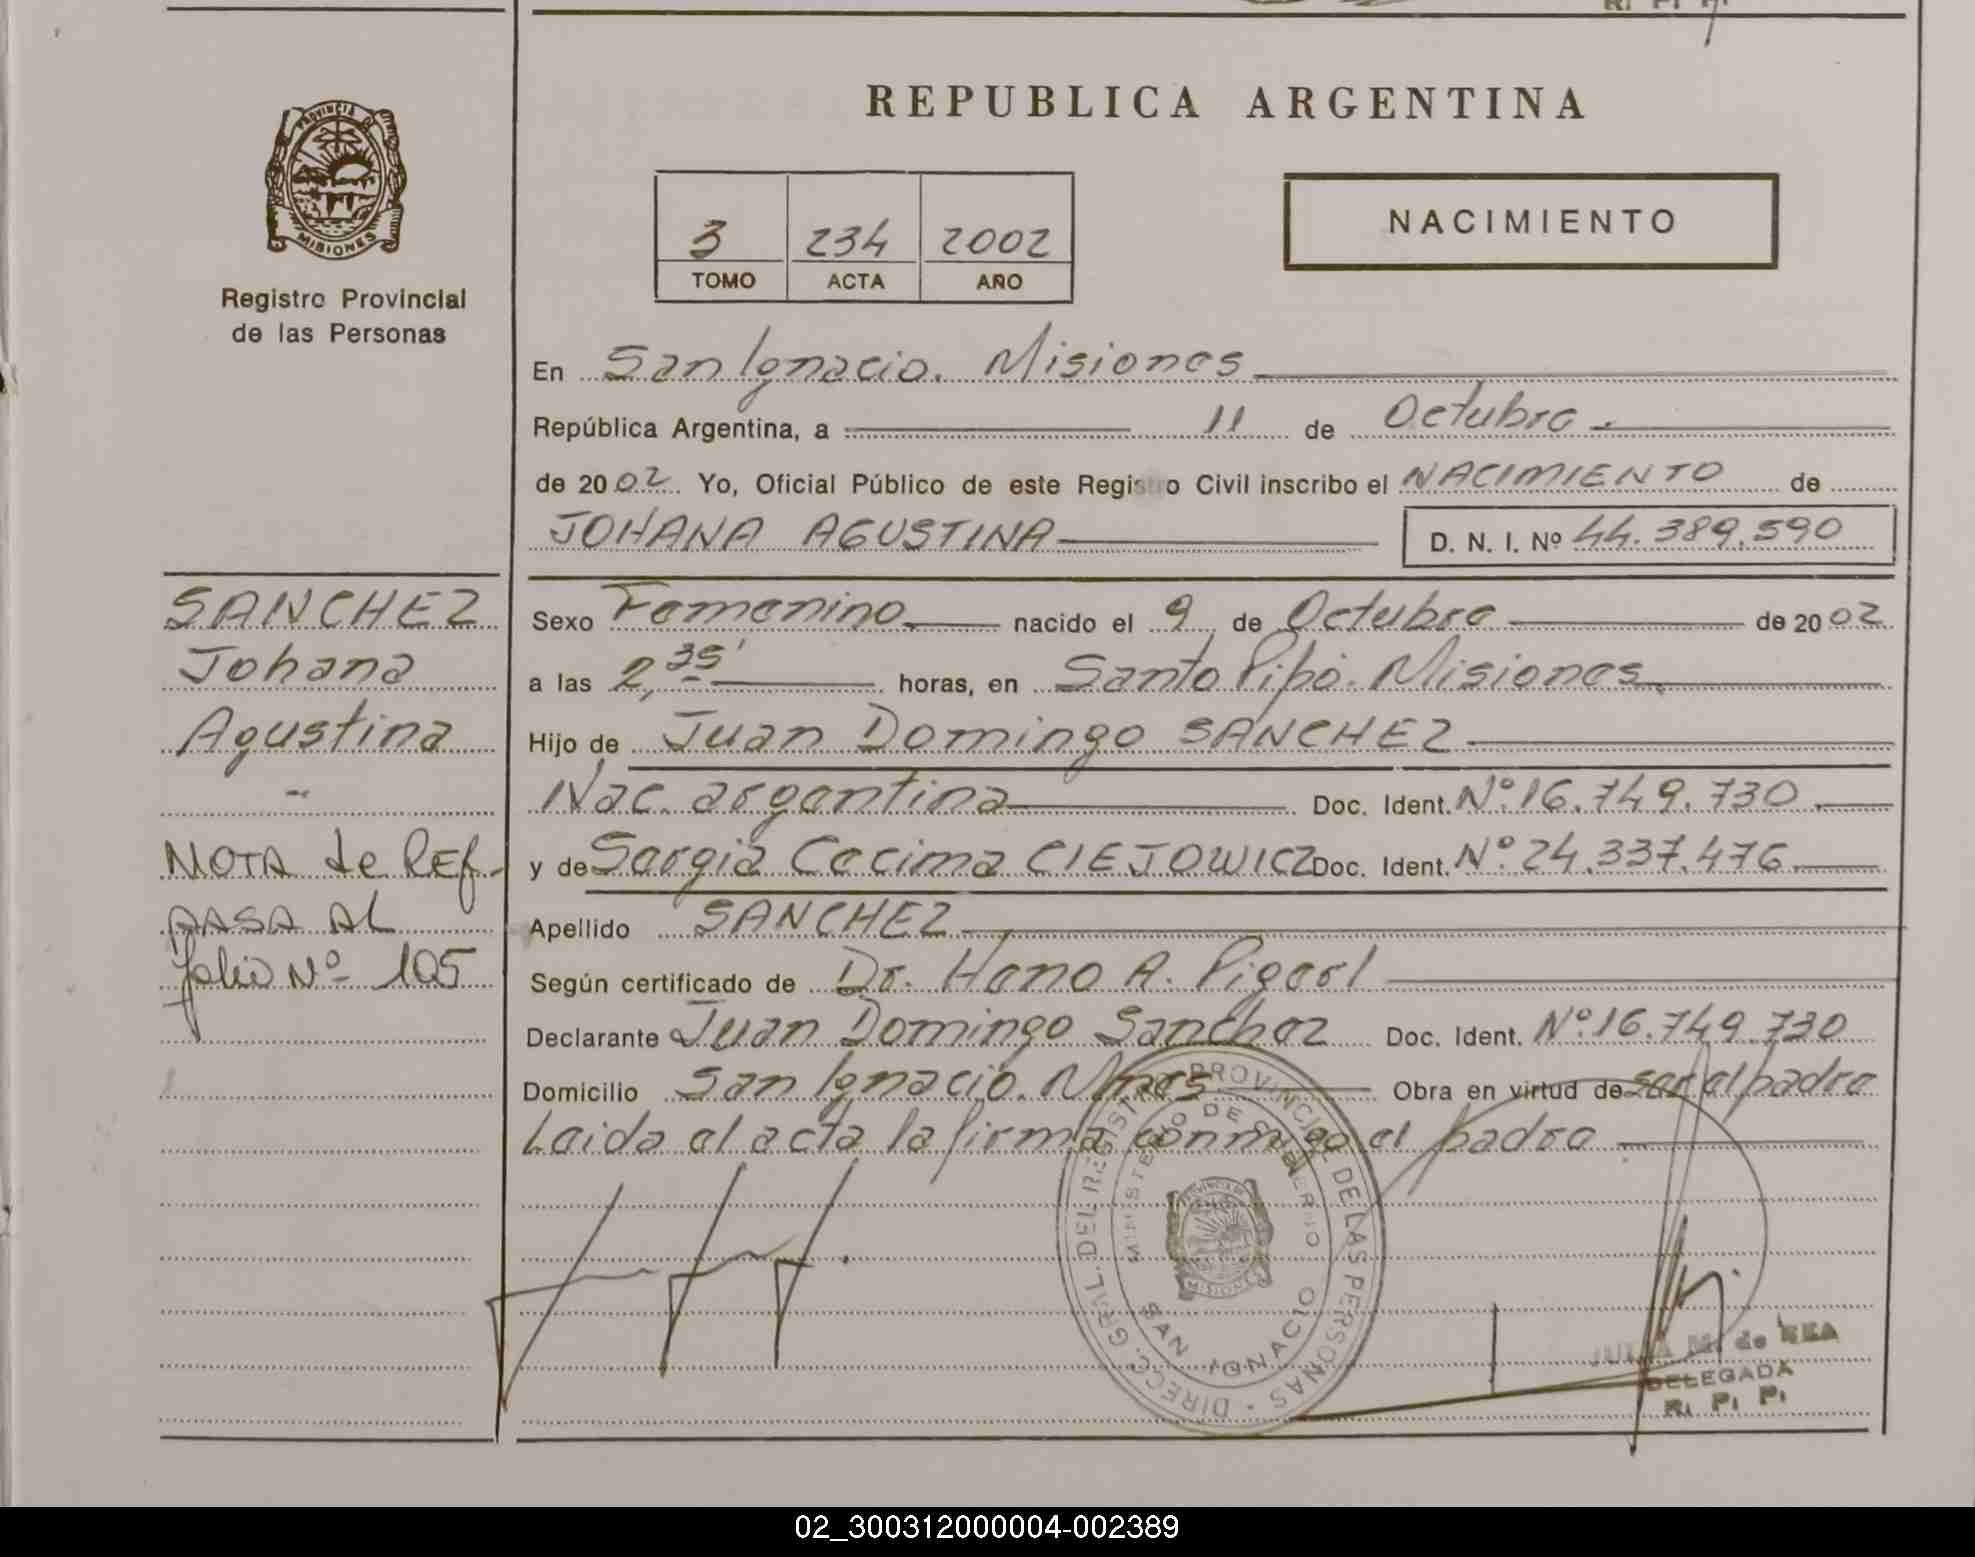 R. P. P.
REPUBLICA ARGENTINA
PROVINCIA DE
MISIONES
Registro Provincial
de las Personas
3 234 2002
TOMO ACTA AÑO
NACIMIENTO
En San Ignacio. Misiones
República Argentina, a 11 de Octubre.
de 2002 Yo, Oficial Público de este Registro Civil inscribo el NACIMIENTO de
JOHANA AGUSTINA D. N. I. Nº 44.389.590
SANCHEZ
Johana
Agustina
NOTA de REF.
PASA AL
folio Nº 105
Sexo Femenino nacido el 9 de Octubre de 2002
a las 2,35' horas, en Santo Pipó. Misiones.
Hijo de Juan Domingo SANCHEZ
Nac. argentina Doc. Ident. Nº 16.749.730
y de Sergia Cecima CIEJOWICZ Doc. Ident. Nº 24.337.476
Apellido SANCHEZ
Según certificado de Dr. Hano A. Pigerl
Declarante Juan Domingo Sanchez Doc. Ident. Nº 16.749.730
Domicilio San Ignacio. Mnes Obra en virtud de ser el padre
Leida el acta la firma conmigo el padre
DIRECC. GRAL. DEL REGISTRO PROVINCIAL DE LAS PERSONAS
MINISTERIO DE GOBIERNO
SAN IGNACIO
MISIONES
JULIA M. de REA
DELEGADA
R. P. P.
02_300312000004-002389